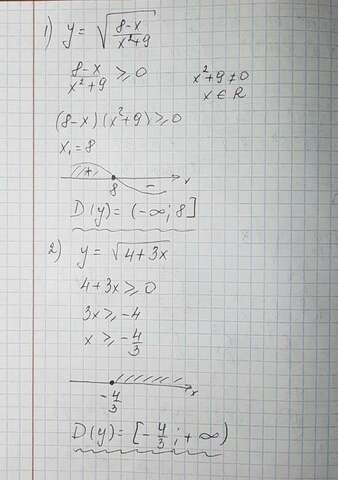 1) y = √((8-x)/(x²+9))
(8-x)/(x²+9) ⩾ 0    x²+9 ≠ 0
x ∈ R
(8-x)(x²+9) ⩾ 0
x₁ = 8
+ − x
8
D(y) = (-∞; 8]
2) y = √(4+3x)
4+3x ⩾ 0
3x ⩾ -4
x ⩾ -4/3
x
-4/3
D(y) = [-4/3; +∞)